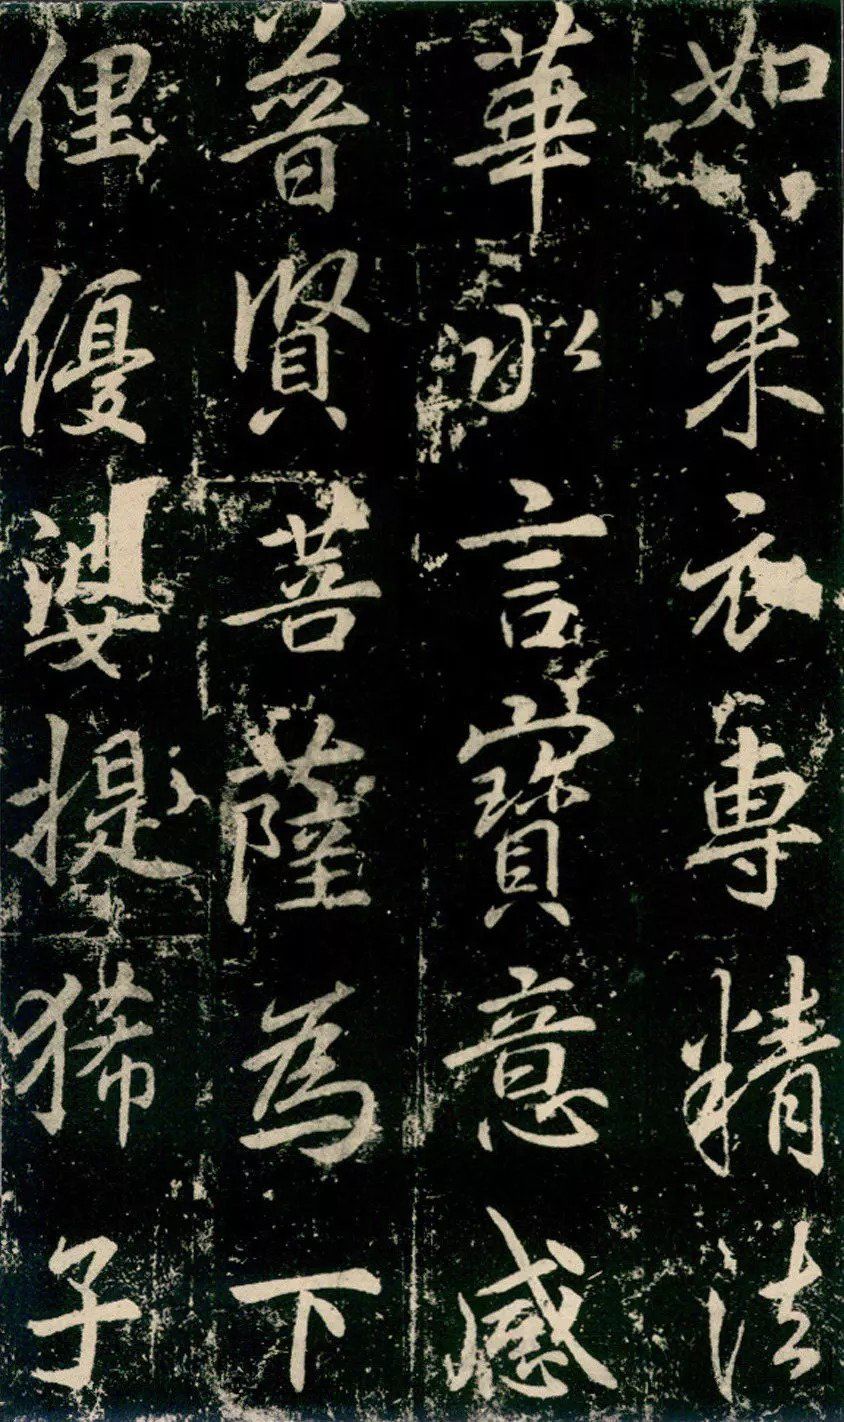 如来衣專精法
華永言寶意感
普賢菩薩為下
俚優婆提狶子